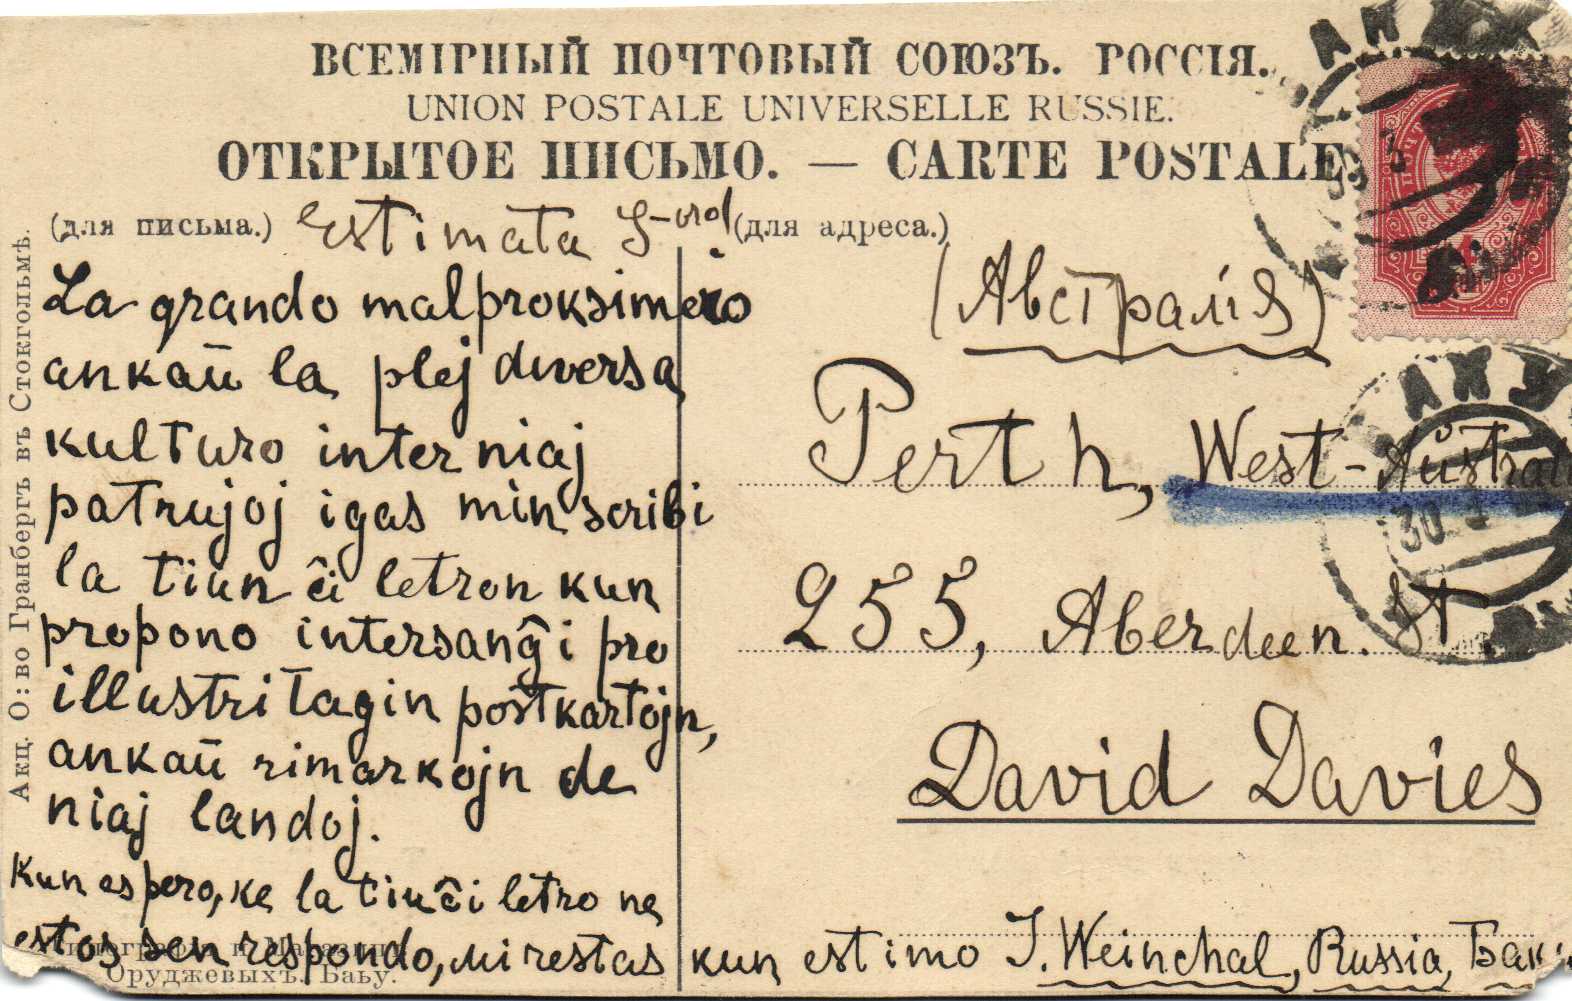 ВСЕМІРНЫЙ ПОЧТОВЫЙ СОЮЗЪ. РОССІЯ.
UNION POSTALE UNIVERSELLE RUSSIE.
ОТКРЫТОЕ ПИСЬМО. — CARTE POSTALE
(для письма.)
(для адреса.)
Estimata S-ord
La grando malproksimeco
ankaŭ la plej diversa
kulturo inter niaj
patrujoj igas min scribi
la tiun ĉi letron kun
propono intersanĝi pro
illustritagin poŝtkartojn,
ankaŭ rimarkojn de
niaj landoj.
Kun espero, ke la tiu ĉi letro ne
estos sen respondo, mi restas kun estimo J. Weinchal, Russia, Баку
(Австралія)
Perth, West-Aŭstrali
255, Aberdeen. St
David Davies
Акц. О:во Гранбергъ въ Стокгольмѣ.
Оруджевыхъ. Баку.
30